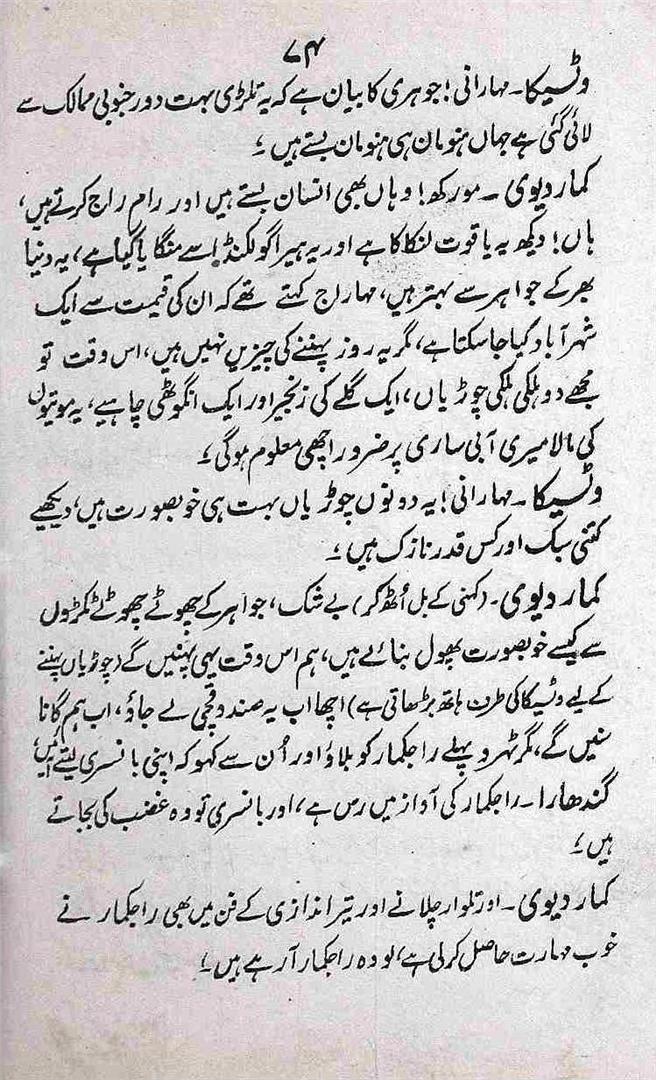 ۷۴
وٹسیکا۔ مہارانی! جوہری کا بیان ہے کہ یہ تلڑی بہت دور جنوبی ممالک سے
لائی گئی ہے جہاں ہنومان ہی ہنومان بستے ہیں ؛
کمار دیوی ۔ مورکھ! وہاں بھی انسان بستے ہیں اور رام راج کرتے ہیں،
ہاں! دیکھ یہ یاقوت لنکا کا ہے اور یہ ہیرا گولکنڈا سے منگایا گیا ہے، یہ دنیا
بھر کے جواہر سے بہتر ہیں، مہاراج کہتے تھے کہ ان کی قیمت سے ایک
شہر آباد کیا جا سکتا ہے، مگر یہ روز پہننے کی چیزیں نہیں ہیں، اس وقت تو
مجھے دو ہلکی ہلکی چوڑیاں، ایک گلے کی زنجیر اور ایک انگوٹھی چاہیے، یہ موتیوں
کی مالا میری آبی ساری پر ضرور اچھی معلوم ہوگی ؛
وٹسیکا۔ مہارانی! یہ دونوں چوڑیاں بہت ہی خوبصورت ہیں، دیکھیے
کتنی سبک اور کس قدر نازک ہیں ؛
کمار دیوی۔ (کہنی کے بل اُٹھ کر) بے شک، جواہر کے چھوٹے چھوٹے ٹکڑوں
سے کیسے خوبصورت پھول بنائے ہیں، ہم اس وقت یہی پہنیں گے (چوڑیاں پہننے
کے لیے وٹسیکا کی طرف ہاتھ بڑھاتی ہے) اچھا اب یہ صندوقچی لے جاؤ، اب ہم گانا
سنیں گے، مگر ٹھہرو پہلے راجکمار کو بلاؤ اور اُن سے کہو کہ اپنی بانسری لیتے آئیں؛
گندھارا۔ راجکمار کی آواز میں رس ہے، اور بانسری تو وہ غضب کی بجاتے
ہیں ؛
کمار دیوی ۔ اور تلوار چلانے اور تیر اندازی کے فن میں بھی راجکمار نے
خوب مہارت حاصل کر لی ہے، لو وہ راجکمار آ رہے ہیں ۔!